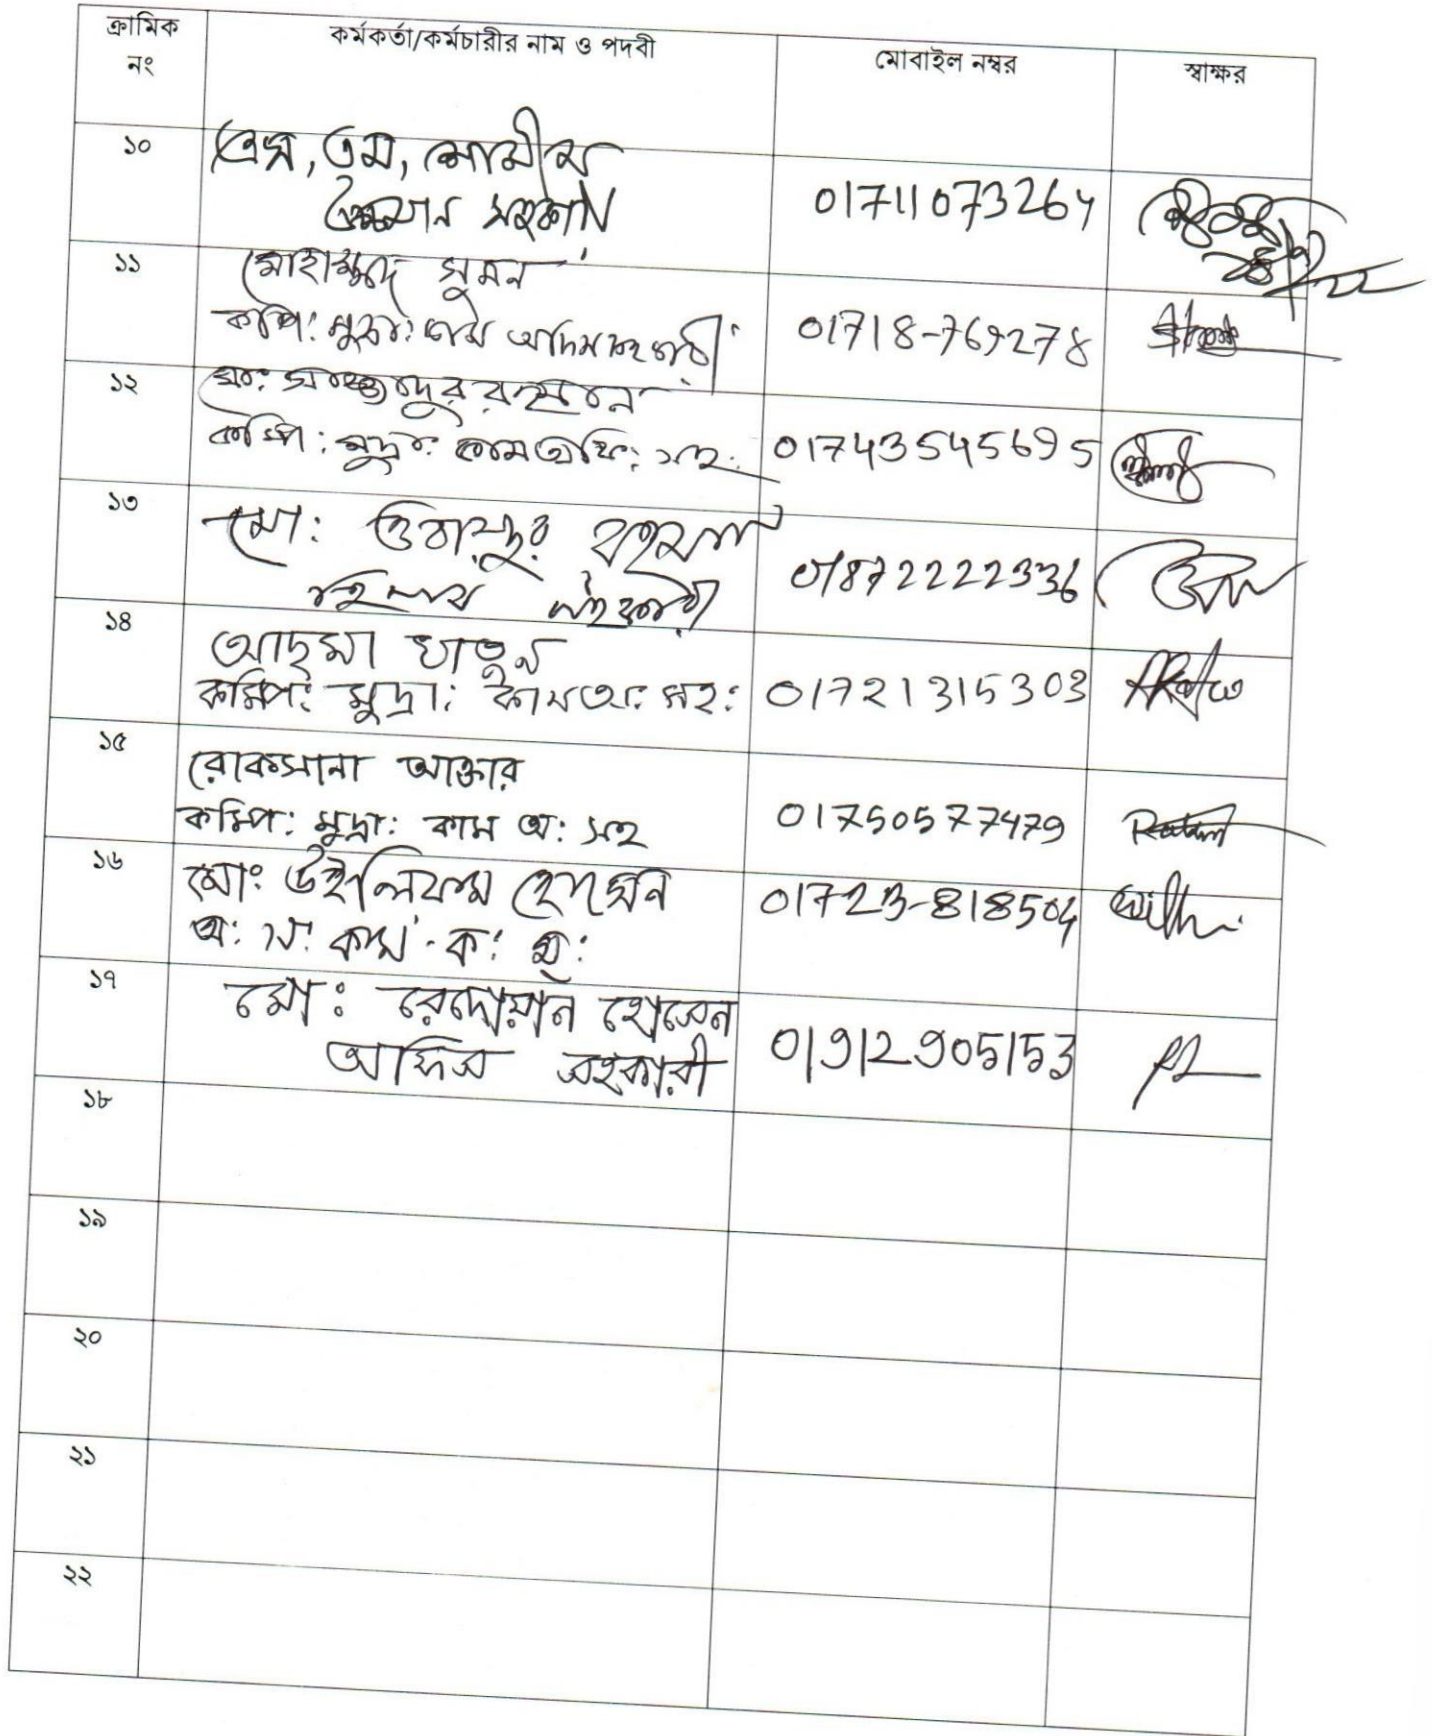 ক্রামিক নং
কর্মকর্তা/কর্মচারীর নাম ও পদবী
মোবাইল নম্বর
স্বাক্ষর
১০
এস, এম, শামীম
সহকারী
01711073264
১১
মোহাম্মদ সুমন
কম্পি: মুদ্রা: কাম অফিস সহকারী
01718-769278
১২
মো: রহমান
কম্পি: মুদ্রা: কাম অফি: সহ:
01743545695
১৩
মো: ওবায়দুর রহমান
হিসাব সহকারী
01872222336
১৪
আছমা খাতুন
কম্পি: মুদ্রা: কাম অ: সহ:
01721315303
১৫
রোকসানা আক্তার
কম্পি: মুদ্রা: কাম অ: সহ
01750577479
১৬
মো: উইলিয়াম হোসেন
অ: স: কাম. ক: মু:
01723-818504
১৭
মো: রেদোয়ান হোসেন
অফিস সহকারী
01912905153
১৮
১৯
২০
২১
২২